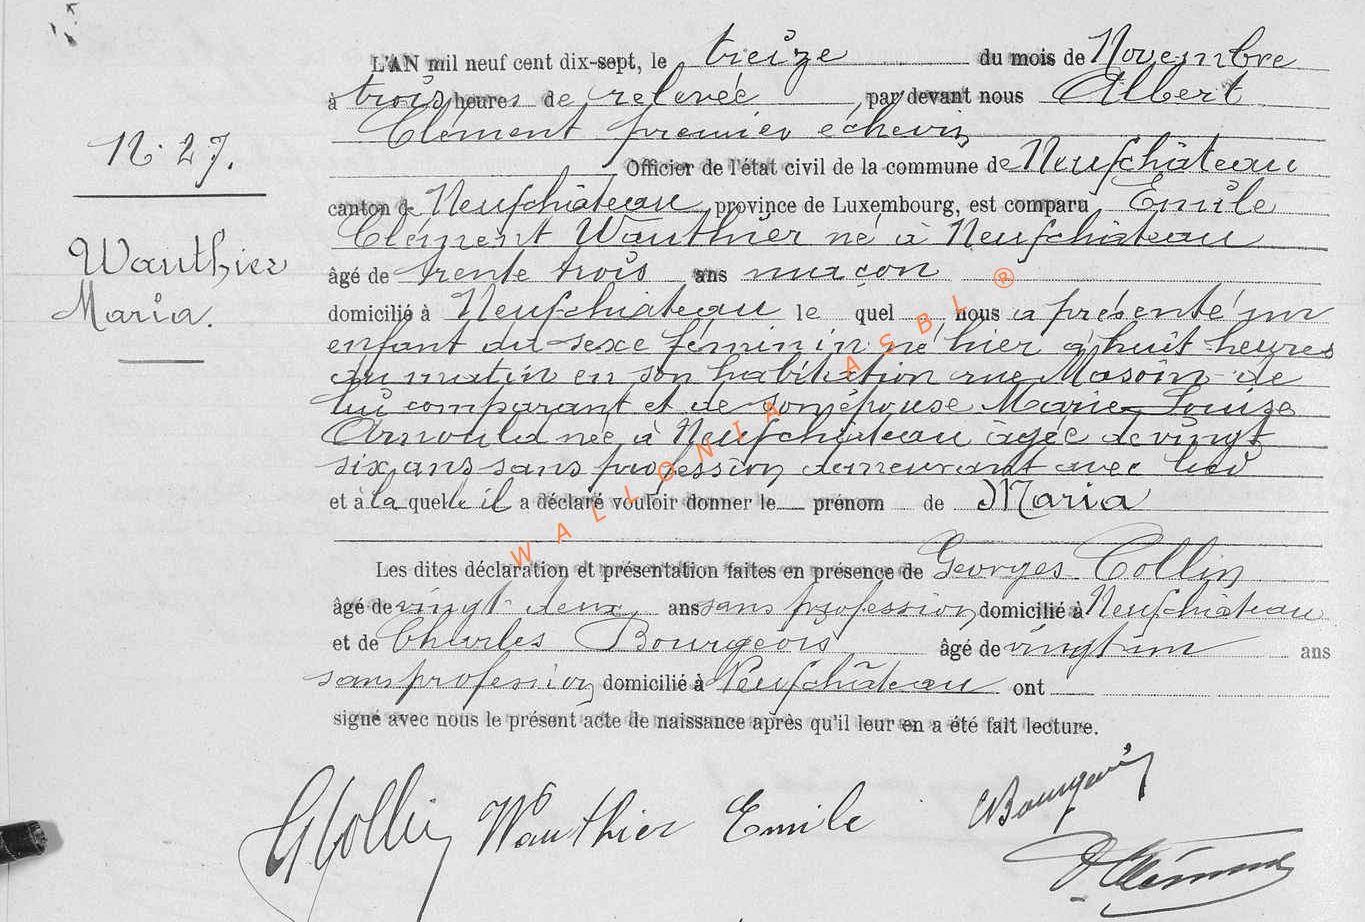 L'AN mil neuf cent dix-sept, le treize du mois de Novembre
à trois heures de relevée, par devant nous Albert
Clément premier échevin
N. 27.
Officier de l'état civil de la commune de Neufchâteau
canton de Neufchâteau, province de Luxembourg, est comparu Emile
Clément Wauthier né à Neufchâteau
Wauthier
Maria.
âgé de trente trois ans maçon
domicilié à Neufchâteau le quel nous a présenté un
enfant du sexe féminin né hier à huit heures
du matin en son habitation rue Masoin de
lui comparant et de son épouse Marie Louise
Arnould née à Neufchâteau âgée de vingt
six ans sans profession demeurant avec lui
et à la quelle il a déclaré vouloir donner le prénom de Maria
Les dites déclaration et présentation faites en présence de Georges Collin
âgé de vingt deux ans sans profession domicilié à Neufchâteau
et de Charles Bourgeois âgé de vingt un ans
sans profession domicilié à Neufchâteau ont
signé avec nous le présent acte de naissance après qu'il leur en a été fait lecture.
GCollin Wauthier Emile Bourgeois
Clément
WALLONIA ASBL ®